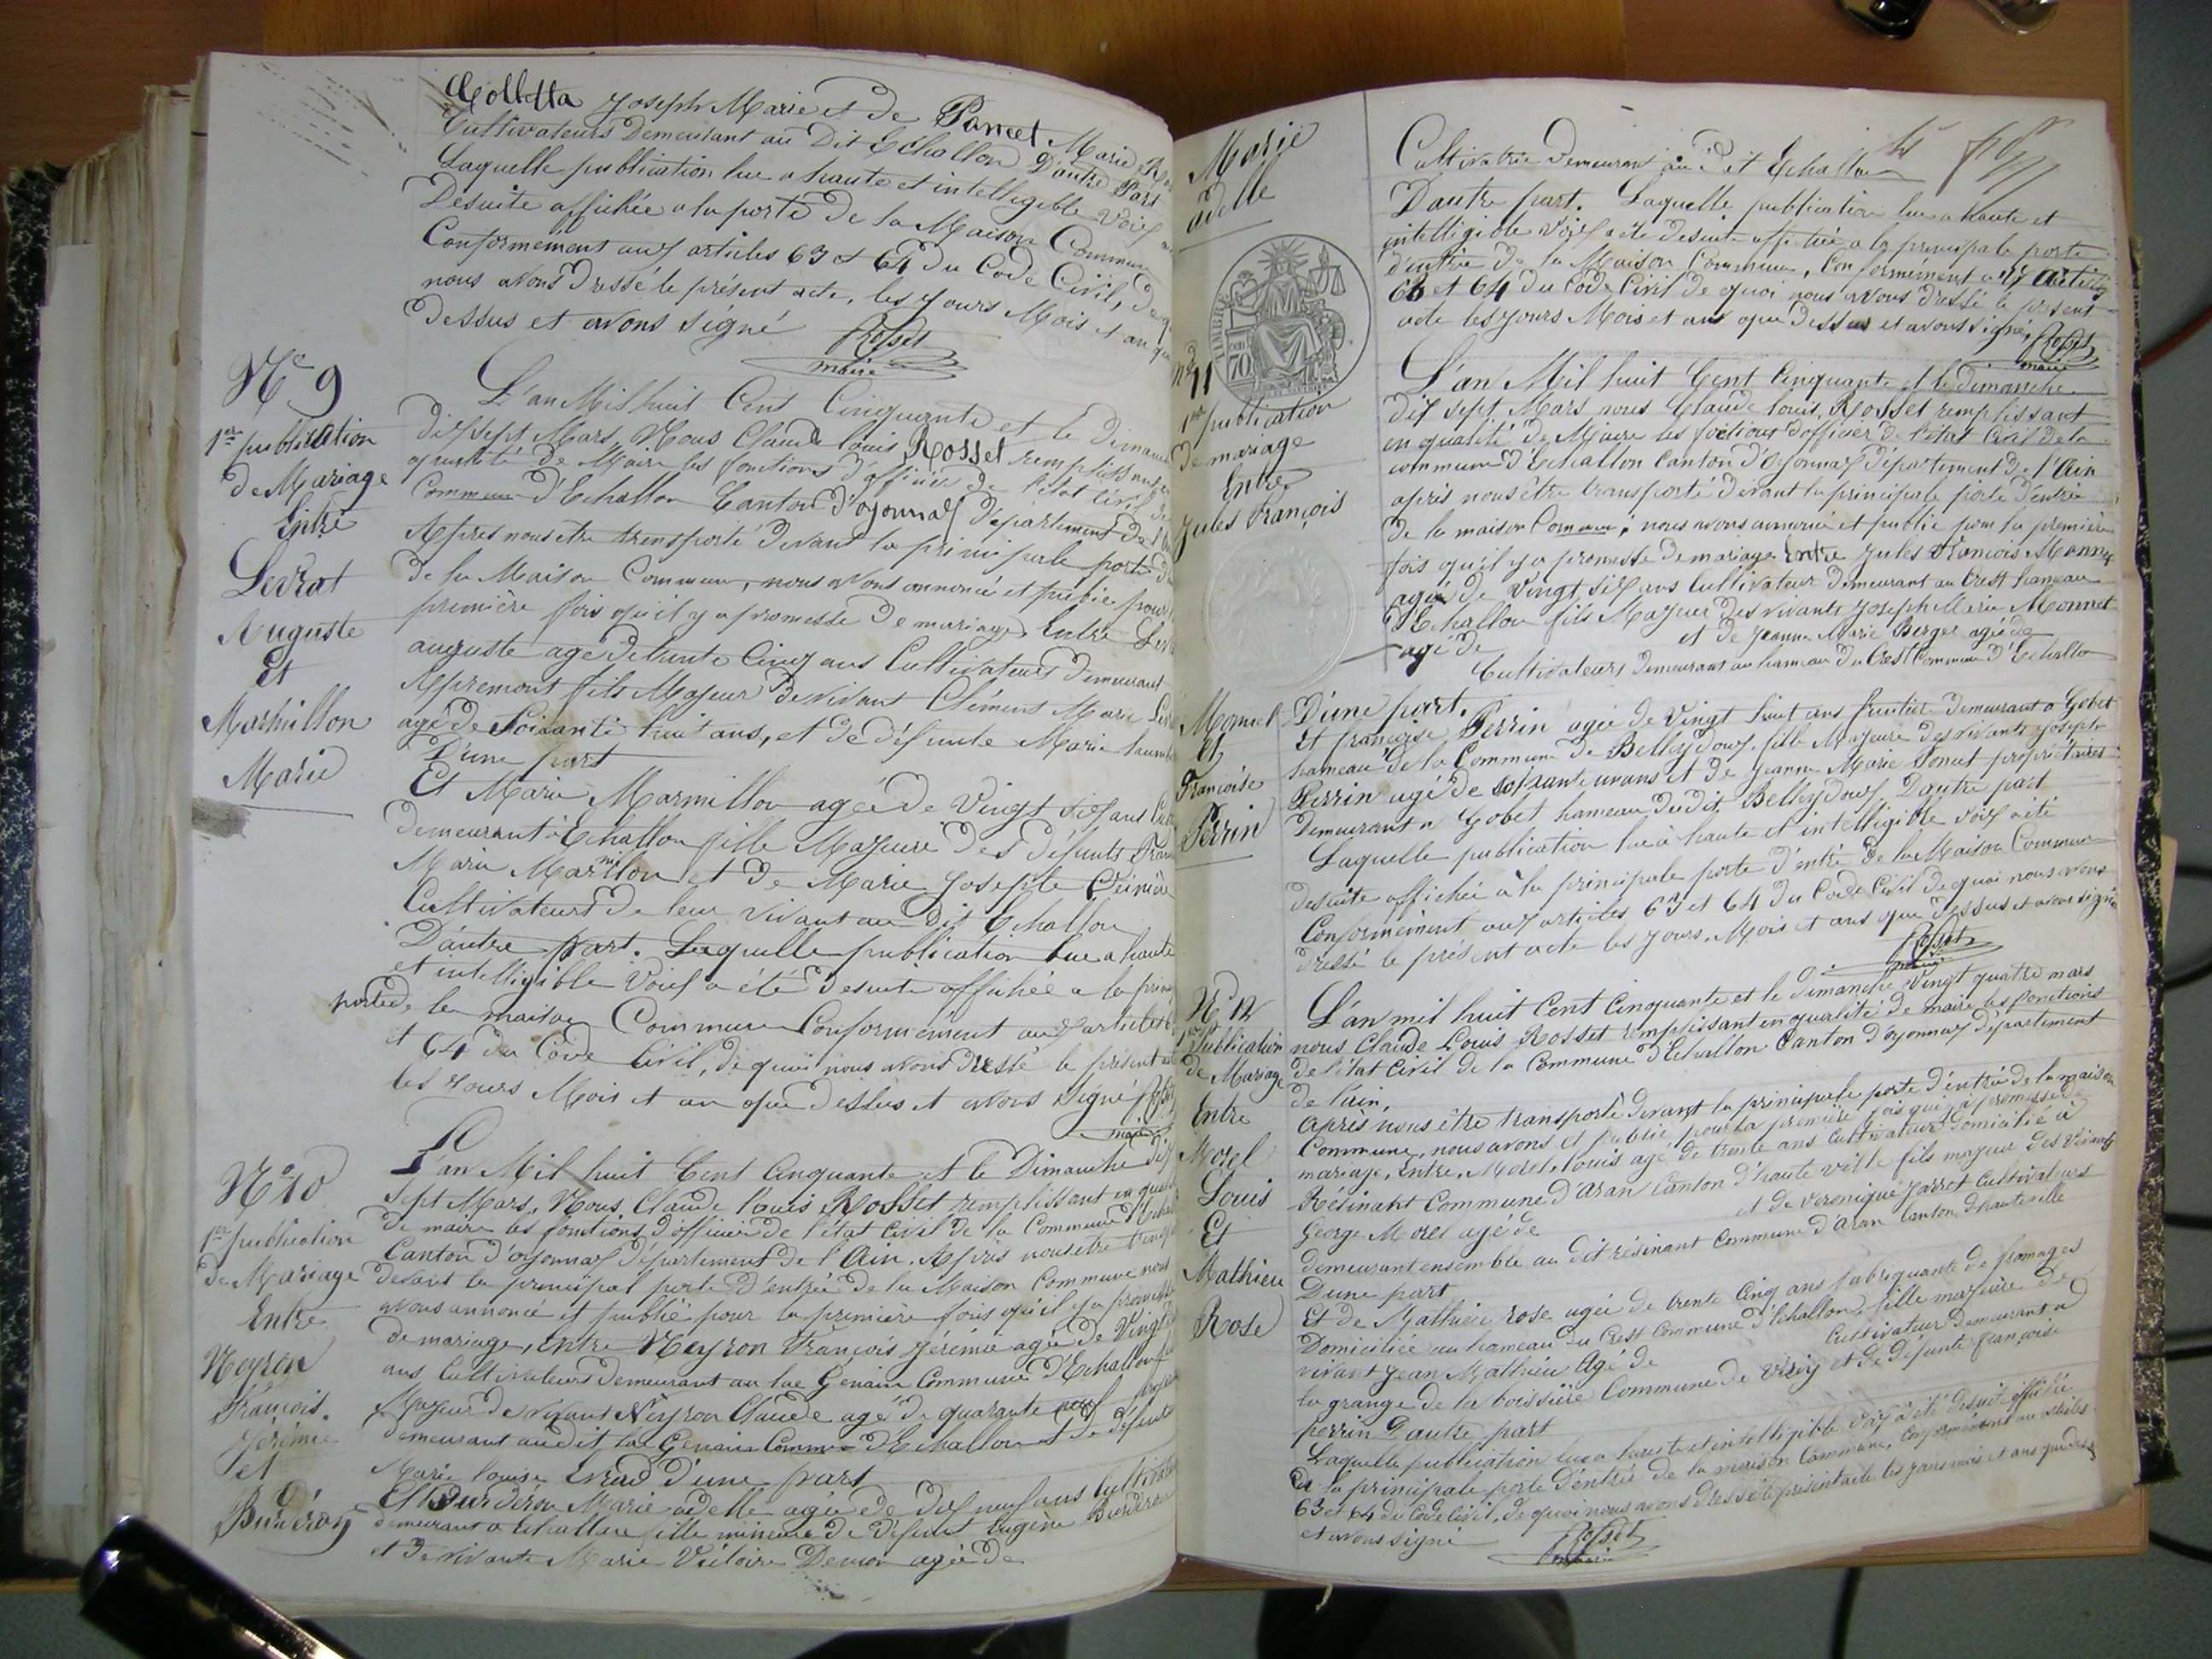 Colletta Joseph Marie et de Poncet Marie
Cultivateurs Demeurant au Dit Echallon D'autre Part
Laquelle publication lue a haute et intelligible Voix
Desuite affichée a la porte de la Maison Commune
Conformément aux articles 63 et 64 du Code Civil, De
nous avons Dressé le présent acte, les jours Mois et an que
dessus et avons signé Rosset
maire
N° 9
1ere publication
de Mariage
Entre
Levrat
Auguste
Et
Marmillon
Marie
L'an Mil huit Cent Cinquante et le Dimanche
dix sept Mars, Nous Claude louis Rosset remplissant en
qualité de Maire les fonctions d'officier de l'état civil de
Commune d'Echallon Canton d'oyonnax département de l'
Apres nous etre transporté devant la principale porte d
de la Maison Commune, nous avons annoncé et publié pour
première fois qu'il y a promesse de mariage, Entre Lev
auguste agé de trente Cinq ans Cultivateurs Demeurant
Apremont fils Majeur de vivant Clément Marie Lev
agé de Soixante huit ans, et de défunte Marie humb
D'une part
Et Marie Marmillon agée de Vingt six ans
demeurant à Echallon fille Majeure des défunts Fran
Marie Marmillon et de Marie Josephte
Cultivateurs de leur vivant au dit Echallon
D'autre part. Laquelle publication lue a haute
et intelligible Voix a été desuite affichée a la prin
porte de la maison Commune Conformément aux articles 6
et 64 du Code Civil, de quoi nous avons dressé le présent acte
les jours Mois et an que dessus et avons signé Rosset
maire
N° 10
1ere publication
de Mariage
Entre
Neyron
François
Jérémie
et
Burdéron
L'an Mil huit Cent Cinquante et le Dimanche dix
sept Mars, Nous Claude louis Rosset remplissant en qual
de maire les fonctions d'officier de l'état civil de la Commune d'Echal
Canton d'oyonnax département de l'Ain. Apris nous etre transp
devant la principal porte d'entrée de la Maison Commune nous
avons annoncé et publié pour la première fois qu'il y a promesse
de mariage, Entre Neyron François Jérémie agé de Vingt
ans, Cultivateurs demeurant au lac Genain Commune d'Echallon f
Majeur de vivant Neyron Claude agé de quarante neuf
demeurant audit lac Genain Commune d'Echallon et de défunte
Marie louise Evrad d'une part
Et Burdéron Marie adelle agée de dix neuf ans Cultiv
demeurant a Echallon fille mineure de défunt Eugène Burdéron
et de vivante Marie Victoire agée de
Marie
adelle
Cultivatrice Demeurant au Dit Echallon
D'autre part. Laquelle publication lue a haute et
intelligible Voix a été desuite affichée a la principale porte
d'entrée de la Maison Commune, Conformément aux articles
63 et 64 du Code Civil de quoi nous avons dressé le present
acte les jours Mois et ans que Dessus et avons signé, Rosset
maire
N° 11
1ere publication
de mariage
Entre
Jules François
Monnet
Et
Françoise
Perrin
L'an Mil huit Cent Cinquante et le dimanche
dix sept Mars nous Claude louis, Rosset remplissant
en qualité de Maire les fonctions d'officier de l'état Civil de la
commune d'Echallon Canton d'Oyonnax département de l'Ain
apris nous être transporté devant la principale porte d'entrée
de la maison Commune, nous avons annoncé et publié pour la première
fois qu'il y a promesse de mariage Entre Jules François Monnet
agé de Vingt, six ans Cultivateur Demeurant au Crest hameau
d'Echallon fils Majeur des vivants Joseph Marie Monnet
agé de et de Jeanne Marie Berger agée de
Cultivateurs demeurant au hameau du Crest Commune d'Echallon
D'une part.
Et françoise Perrin agée de Vingt huit ans Demeurant a Gobet
hameau de la Commune de Belleydoux fille Majeure des vivants Joseph
Perrin agé de soixante un ans et de Jeanne Marie Poncet propriétaires
Demeurant a Gobet hameau dudit Belleydoux D'autre part
Laquelle publication lue à haute et intelligible Voix a été
desuite affichée à la principale porte d'entré de la Maison Commune
Conformément aux articles 63 et 64 du Code Civil de quoi nous avons
dressé le présent acte les jours, Mois et ans que dessus et avons signé
Rosset
maire
N° 12
1ere Publication
de Mariage
Entre
Morel
Louis
Et
Mathieu
Rose
L'an mil huit Cent Cinquante et le dimanche Vingt quatre mars
nous Claude Louis Rosset remplissant en qualité de maire les fonctions
de l'état Civil de la Commune d'Echallon Canton d'oyonnax département
de l'ain,
Après nous être transporté devant la principale porte d'entrée de la maison
Commune, nous avons et publié, pour la première fois qui y a promesse
mariage, Entre, Morel louis agé de trente ans Cultivateur domicilié à
Résinant Commune d'aran Canton d'haute ville fils majeur des vivants
George Morel agé de et de Veronique Jarret Cultivateurs
demeurant ensemble au dit résinant Commune d'aran Canton d'hauteville
D'une part
Et de Mathieu rose agée de trente Cinq ans fabriquante de fromages
Domiciliée au hameau du Crest Commune d'Echallon, fille majeure de
vivant Jean Mathieu Agé de Cultivateur demeurant a
la grange de la boissière Commune de et de défunte françoise
perrin D'autre part
Laquelle publication lue a haute et intelligible voix a été desuite affichée
a la principale porte d'entrée de la maison Commune, Conformément au articles
63 et 64 du Code Civil, de quoi nous avons dressé le présent acte les jours mois et ans que dessus
et avons signé Rosset
maire